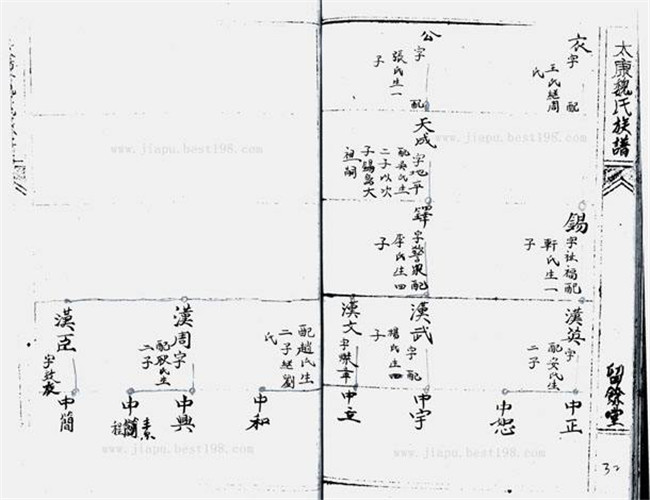 太康魏氏族譜
留餘堂
32
衣 字 配
王氏繼周
氏
公 字 配
張氏生一
子
天成 字地平
配安氏生
二子以次
子錫為大
祖嗣
錫 字祉福配
軒氏生一
子
鐸 字警眾配
李氏生四
子
漢英 字
配安氏生
二子
漢武 字 配
楊氏生四
子
漢文 字煥章
配趙氏生
二子繼劉
氏
漢周 字
配耿氏生
二子
漢臣
中正
中恕
中宇
中立
中和
中興
中簡
www.jiapu.best198.com
www.jiapu.best198.com
www.jiapu.best198.com
www.jiapu.best198.com